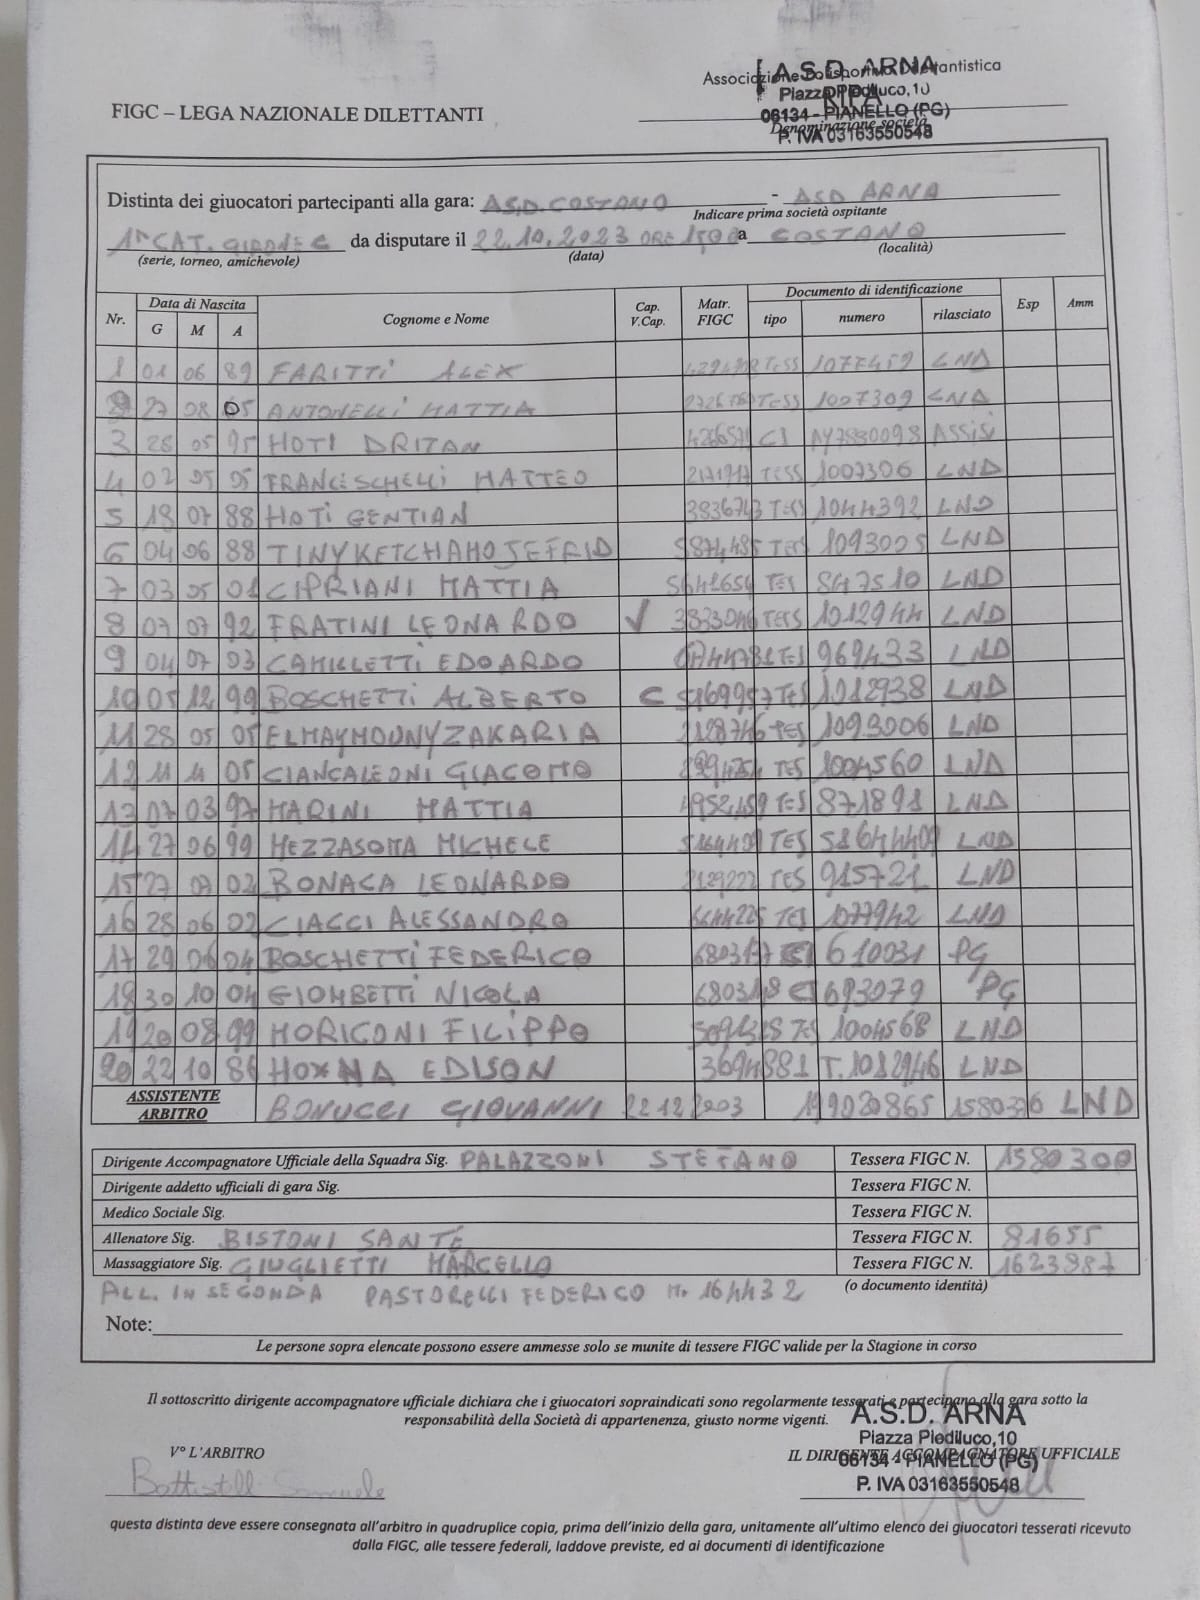 Associazione Polisportiva Dilettantistica
A.S.D. ARNA
Piazza Piediluco, 10
RIPA
06134 - PIANELLO (PG)
Denominazione società
P. IVA 03163550548
FIGC – LEGA NAZIONALE DILETTANTI
Distinta dei giuocatori partecipanti alla gara: A.S.D. COSTANO - ASD ARNA
Indicare prima società ospitante
1ª CAT. GIRONE C da disputare il 22.10.2023 ORE a COSTANO
(serie, torneo, amichevole) (data) (località)
Nr. Data di Nascita Cognome e Nome Cap. V.Cap. Matr. FIGC Documento di identificazione Esp Amm
G M A tipo numero rilasciato
1 01 06 89 FARITTI ALEX TESS 1077459 LND
27 08 05 ANTONELLI MATTIA TESS 1007309 LND
3 28 05 95 HOTI DRITAN CI AY7880098 ASSISI
4 02 05 05 FRANCESCHELLI MATTEO TESS 1007306 LND
5 18 07 88 HOTI GENTIAN 3836743 TESS 1044392 LND
6 04 06 88 TINYKETCHAHOJEFRID TES 1093005 LND
7 03 05 01 CIPRIANI MATTIA 5641654 TES 847510 LND
8 07 07 92 FRATINI LEONARDO V TESS 1012944 LND
9 04 07 03 CAMILLETTI EDOARDO TES 969433 LND
10 05 12 99 BOSCHETTI ALBERTO C 5169957 TES 1012938 LND
11 28 05 05 ELMAYMOUNYZAKARIA TES 1093006 LND
12 11 4 05 CIANCALEONI GIACOMO TES 1004560 LND
13 07 03 97 MARINI MATTIA 4952459 TES 871891 LND
14 27 06 99 MEZZASOMA MICHELE TES 51644409 LND
15 27 07 02 BONACA LEONARDO TES 915721 LND
16 28 06 02 CIACCI ALESSANDRO 6644225 TES 1077942 LND
17 29 06 04 BOSCHETTI FEDERICO CI 610031 PG
18 30 10 04 GIOMBETTI NICOLA 6803148 CI 693079 PG
19 20 08 99 MORICONI FILIPPO TES 1004568 LND
20 22 10 86 HOXHA EDISON 3694881 T. 1012946 LND
ASSISTENTE ARBITRO BONUCCI GIOVANNI 22 12 2003 LND
Dirigente Accompagnatore Ufficiale della Squadra Sig. PALAZZONI STEFANO Tessera FIGC N. 1580300
Dirigente addetto ufficiali di gara Sig. Tessera FIGC N.
Medico Sociale Sig. Tessera FIGC N.
Allenatore Sig. BISTONI SANTE Tessera FIGC N. 81655
Massaggiatore Sig. GIUGLIETTI MARCELLO Tessera FIGC N. 1623987
ALL. IN SECONDA PASTORELLI FEDERICO M. 164432 (o documento identità)
Note:
Le persone sopra elencate possono essere ammesse solo se munite di tessere FIGC valide per la Stagione in corso
Il sottoscritto dirigente accompagnatore ufficiale dichiara che i giuocatori sopraindicati sono regolarmente tesserati e partecipano alla gara sotto la
responsabilità della Società di appartenenza, giusto norme vigenti.
A.S.D. ARNA
Piazza Piediluco, 10
V° L'ARBITRO IL DIRIGENTE ACCOMPAGNATORE UFFICIALE
06134 - PIANELLO (PG)
P. IVA 03163550548
questa distinta deve essere consegnata all'arbitro in quadruplice copia, prima dell'inizio della gara, unitamente all'ultimo elenco dei giuocatori tesserati ricevuto
dalla FIGC, alle tessere federali, laddove previste, ed ai documenti di identificazione